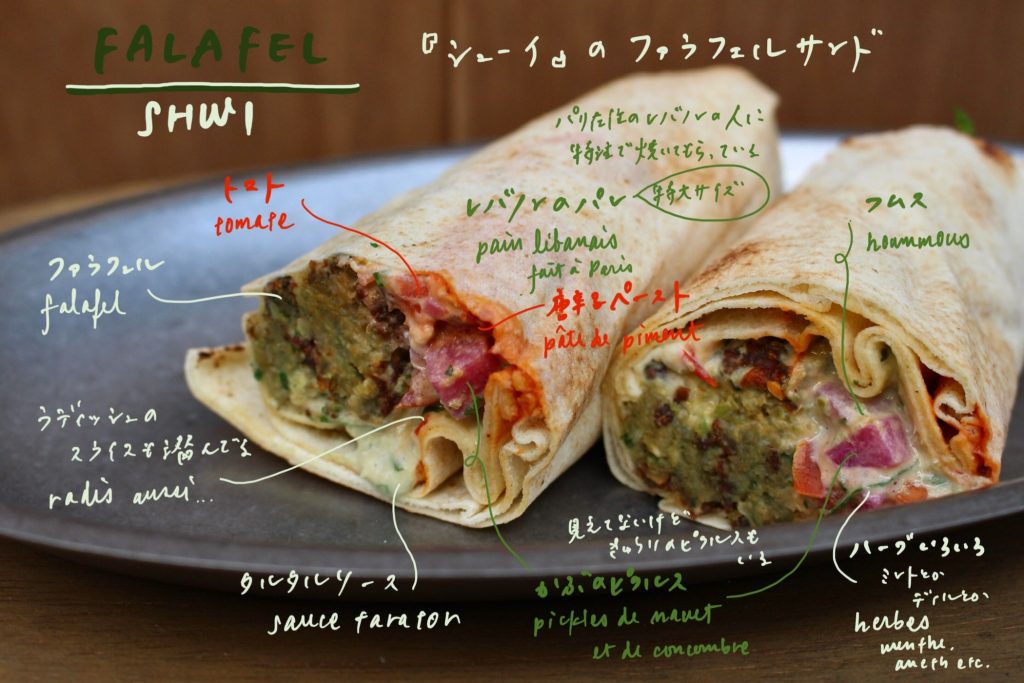 FALAFEL
SHWI
『シューイ』のファラフェルサンド
パリ在住のレバノンの人に
特注で焼いてもらっている
レバノンのパン
特大サイズ
pain libanais
fait à Paris
トマト
tomate
フムス
hoummous
ファラフェル
falafel
唐辛子ペースト
pâte de piment
ラディッシュの
スライスも潜んでる
radis aussi...
見えてないけど
きゅうりのピクルスも
いる
タルタルソース
sauce tarator
かぶのピクルス
pickles de navet
et de concombre
ハーブいろいろ
ミントとか
ディルとか
herbes
menthe,
aneth etc.